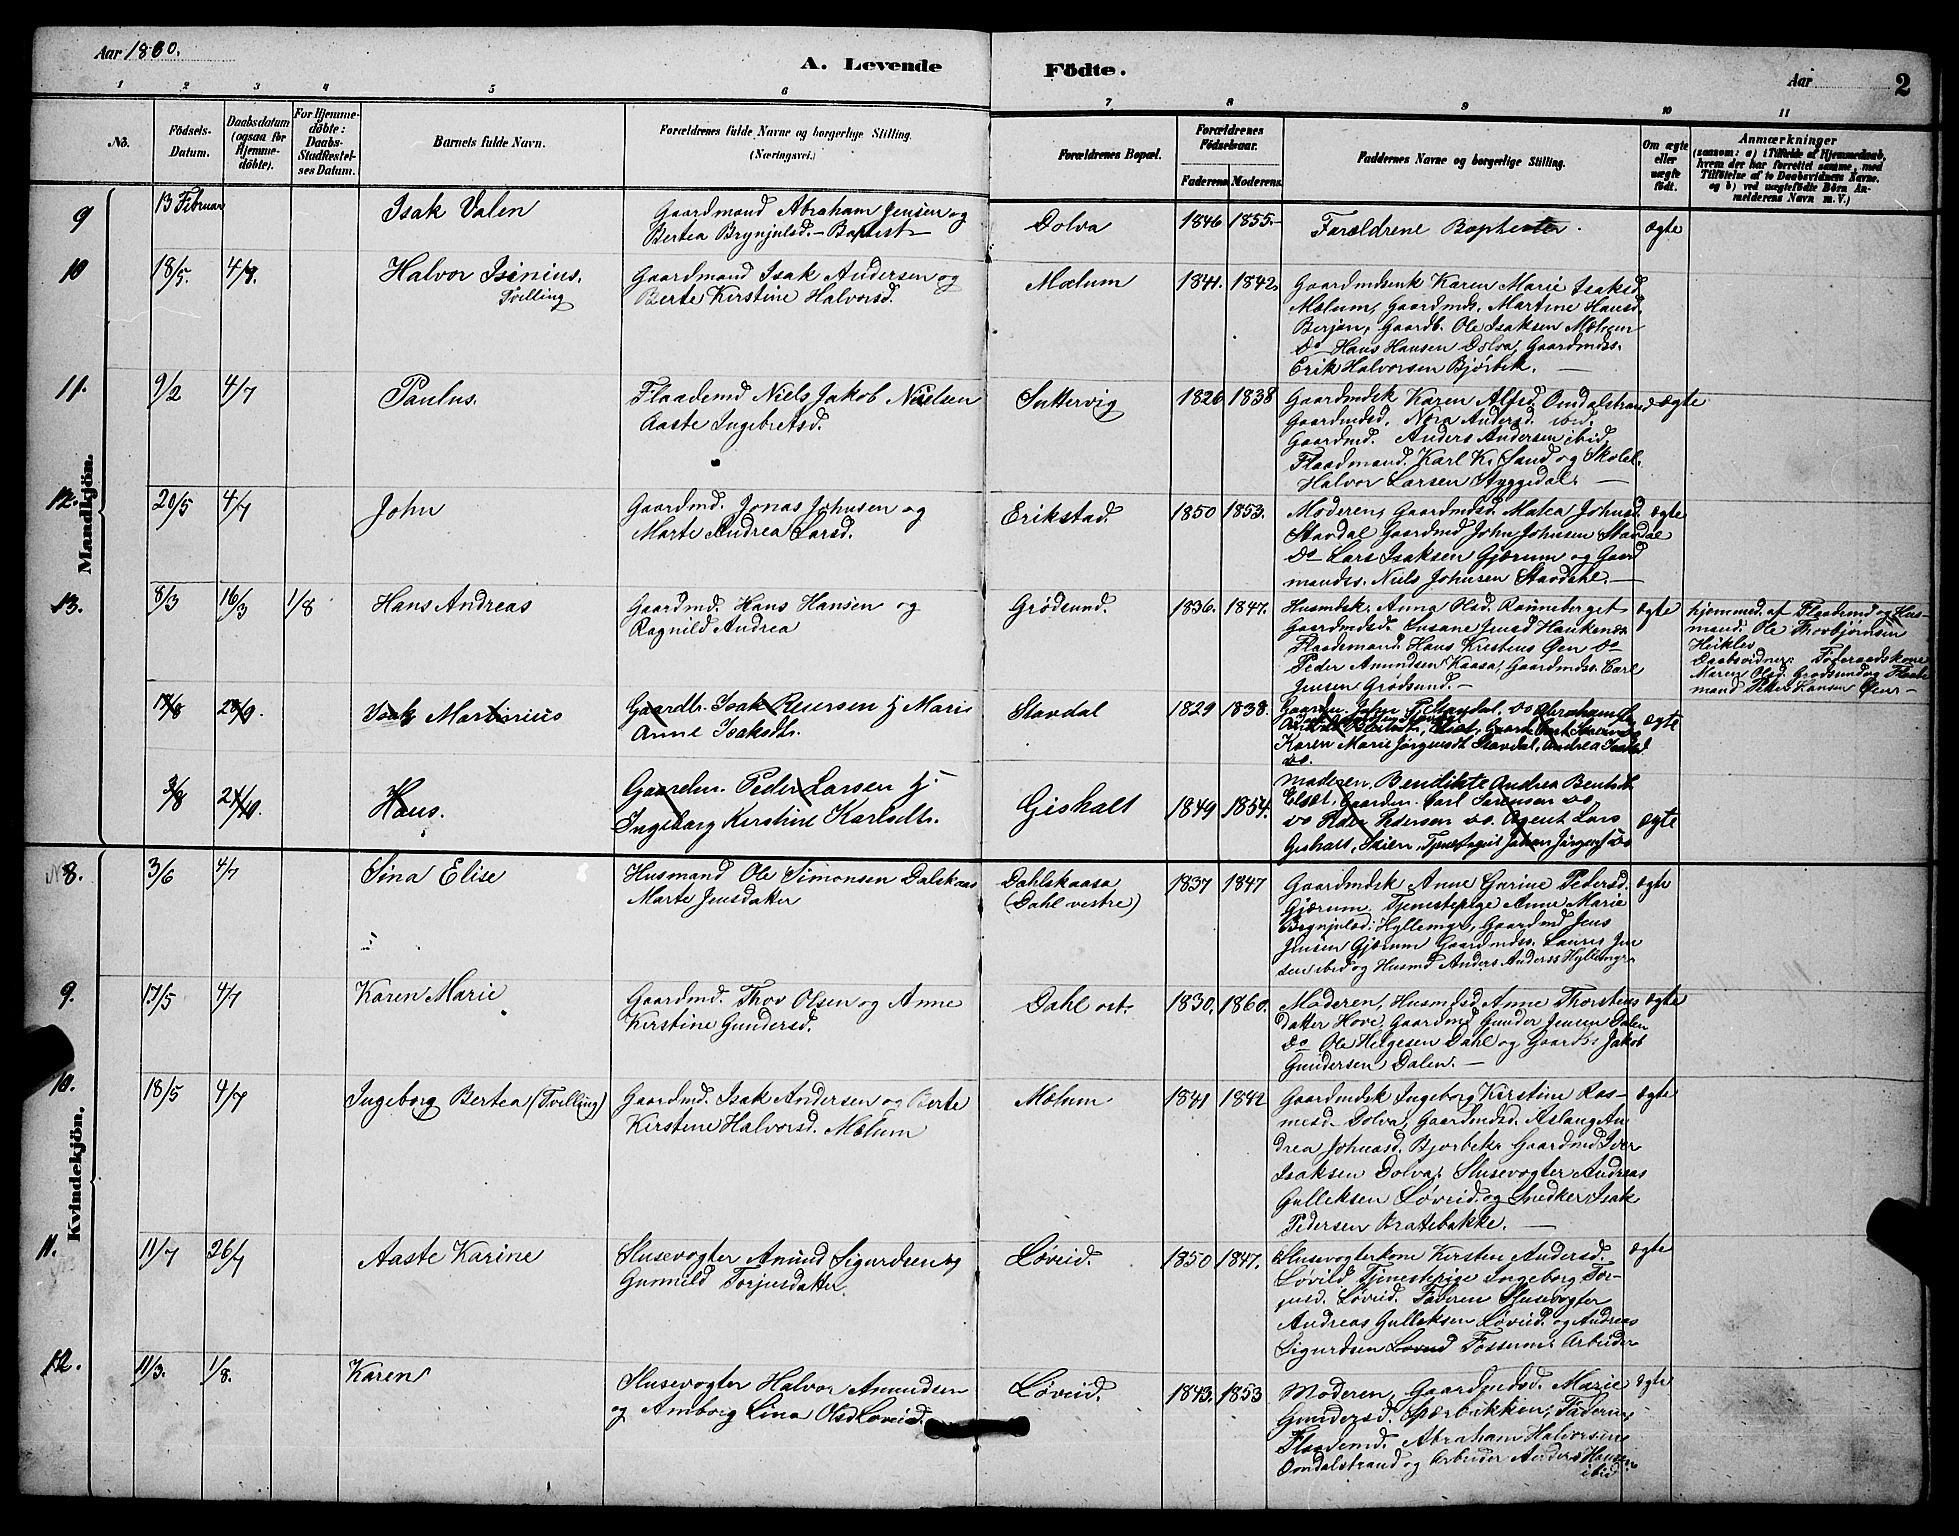 Aar 1880.
A. Levende Födte.
Aar
2
1 2 3 4 5 6 7 8 9 10 11
No.
Födsels-
Datum.
Daabsdatum
(ogsaa for
Hjemme-
döbte).
For Hjemme-
döbte:
Daabs-
Stadfæstel-
ses Datum.
Barnets fulde Navn.
Forældrenes fulde Navne og borgerlige Stilling.
(Næringsvei.)
Forældrenes Bopæl.
Forældrenes
Födselsaar.
Faderens. Moderens.
Faddernes Navne og borgerlige Stilling.
Om ægte
eller
uægte
födt.
Anmærkninger
(saasom: a) i Tilfælde af Hjemmedaab,
hvem der har forrettet samme, med
Tilföielse af to Daabsvidners Navne,
og b) ved uægtefödte Börn An-
melderens Navn m. V.)
Mandkjön.
9
13 Februar
Isak Valen
Gaardmand Abraham Jensen og
Bertea Brynjulsd. – Baptist
Dolva
1846 1855.
Forældrene Baptister.
ægte
10
18/5. 4/7.
Halvor Isinius.
Tvilling
Gaardmand Isak Andersen og
Berte Kirstine Halvorsd.
Mælum
1841. 1842.
Gaardmdsenk Karen Marie Isaksd
Mælum, Gaardmds. Martine Hansd.
Berjan, Gaardb. Ole Isaksen Mælum
Do Hans Hansen Dolva, Gaardmdss.
Erik Halvorsen Bjørbek.
11.
9/2 4/7
Paulus.
Flaademd Niels Jakob Nielsen
Aaste Ingebretsd.
Suttervig
1826 1838
Gaardmdsk Karen Alfsd. Omdalstrand
ægte
Gaardmdsd. Nora Andersd. ibid.
Gaardmd. Anders Andersen ibid.
Flaademand. Karl K. Sand og Skolel.
Halvor Larsen Styggedal.
12.
20/5 4/7
John
Gaardmd. Jonas Johnsen og
Marte Andrea Larsd.
Erikstad.
1850 1853.
Moderen, Gaardmdsd. Malea Johnsd.
ægte
Stavdal Gaardmd John Johnsen Stavdal
Do Lars Isaksen Gjærum og Gaard
mandss. Niels Johnsen Stavdahl.
13.
8/3 16/3 1/8
Hans Andreas
Gaardmd. Hans Hansen og
Ragnild Andrea
Grødsund.
1836. 1847.
Husmdsk. Anna Olsd. Rønneberget
ægte
Gaardmdsd. Susane Jensd Haukenæs
Flaademand. Hans Kristens Øen Do
Peder Amundsen Kaasa, Gaardmdss. Carl
Jensen Grødsund.
hjemmed. af Flaademd og Hus
mand. Ole Thorbjørnsen
Heikles
Daabsvidner: Føderaadskone
Maren Olsd. Grødsund og Flaade
mand Peter Hansen Øen
Isak Martinius
Gaardbr. Isak Reiersen & Marie
Anne Isaksdtr.
Stavdal
1829 1838.
ægte
Karen Marie Jørgensdt Stavdal, Andrea Isaksd
do.
3/8
Hans.
Gaardm. Peder Larsen &
Ingeborg Kirstine Karlsdtr.
Gisholt
1849 1854.
Moderen, Bendikte Andrea Bentsd.
Gaardm. Carl Sørensen do.
do Peder Pedersen do. Agent Lars
ægte
Gisholt, Skien,
Kvindekjön.
8.
3/6 4/7
Sina Elise
Husmand Ole Simonsen Dalskaas
Marte Jensdatter
Dahlskaasa
(Dahl vestre)
1837 1847
Gaardmdsk Anne Gurine Pedersd.
ægte
Gjærum. Tjenestepige Anne Marie
Brynjulsd. Hyllemyr, Gaardmd Jens
Jensen Gjærum Gaardmdss. Laurts Jen
sen ibid og Husmd Anders Anderss Hyllemyr
9.
17/5 4/7
Karen Marie
Gaardmd. Thov Olsen og Anne
Kirstine Gundersd.
Dahl ost.
1830. 1860.
Moderen, Husmdsd Anne Thorstens
ægte
datter Hove, Gaardmd Gunder Jensen Dalen
Do Ole Helgesen Dahl og Gaardss Jakob
Gundersen Dalen.
10.
18/5 4/7
Ingeborg Bertea (Tvilling)
Gaardmd. Isak Andersen og Berte
Kirstine Halvorsd. Mælum
Mælum
1841 1842
Gaardmdsk Ingeborg Kirstine Ras-
ægte
musd. Dolva, Gaardmdsd. Aslaug An
drea Johnasd. Bjorbek, Gaardmd Iver
Isaksen Dolva, Slusevogter Andreas
Gulleksen Løveid og Snedker Isak
Pedersen Bratebakke.
11.
11/7 26/7
Aaste Karine
Slusevogter Amund Sigurdsen og
Gunnild Torjusdatter.
Løveid.
1850 1847.
Slusevogterkone Kirsten Andersd.
ægte
Løveid Tjenestepige Ingeborg Tor-
jusd. Løveid. Faderen Slusevogter
Andreas Gulleksen Løveid. og Andreas
Sigurdsen Løveid Fossum. Arbeider
12.
11/3. 1/8.
Karen
Slusevogter Halvor Amundsen
og Amborg Lina Olsd Løveid.
Løveid.
1843. 1853
Moderen, Gaardmdsd. Marie
ægte
Gundersd. Spærbikken, Faderen
Flaademd. Abraham Halvorsen
Omdalstrand og Arbeider Anders Hansen
ibid